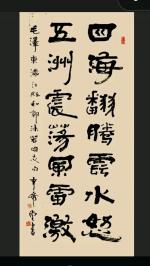 四海翻騰雲水怒
五洲震蕩風雷激
毛澤東滿江紅和郭沫若同志句